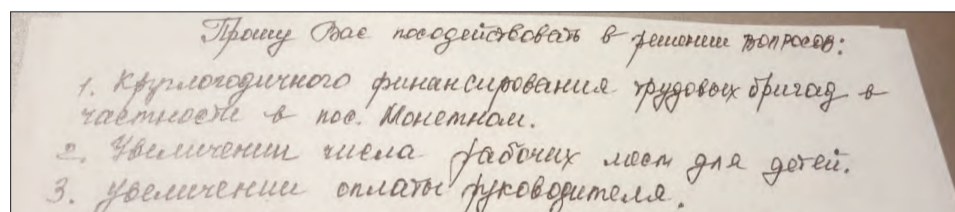 Прошу Вас посодействовать в решении вопросов:
1. Круглогодичного финансирования трудовых бригад в
частности в пос. Монетном.
2. Увеличении числа рабочих мест для детей.
3. Увеличении оплаты руководителя.